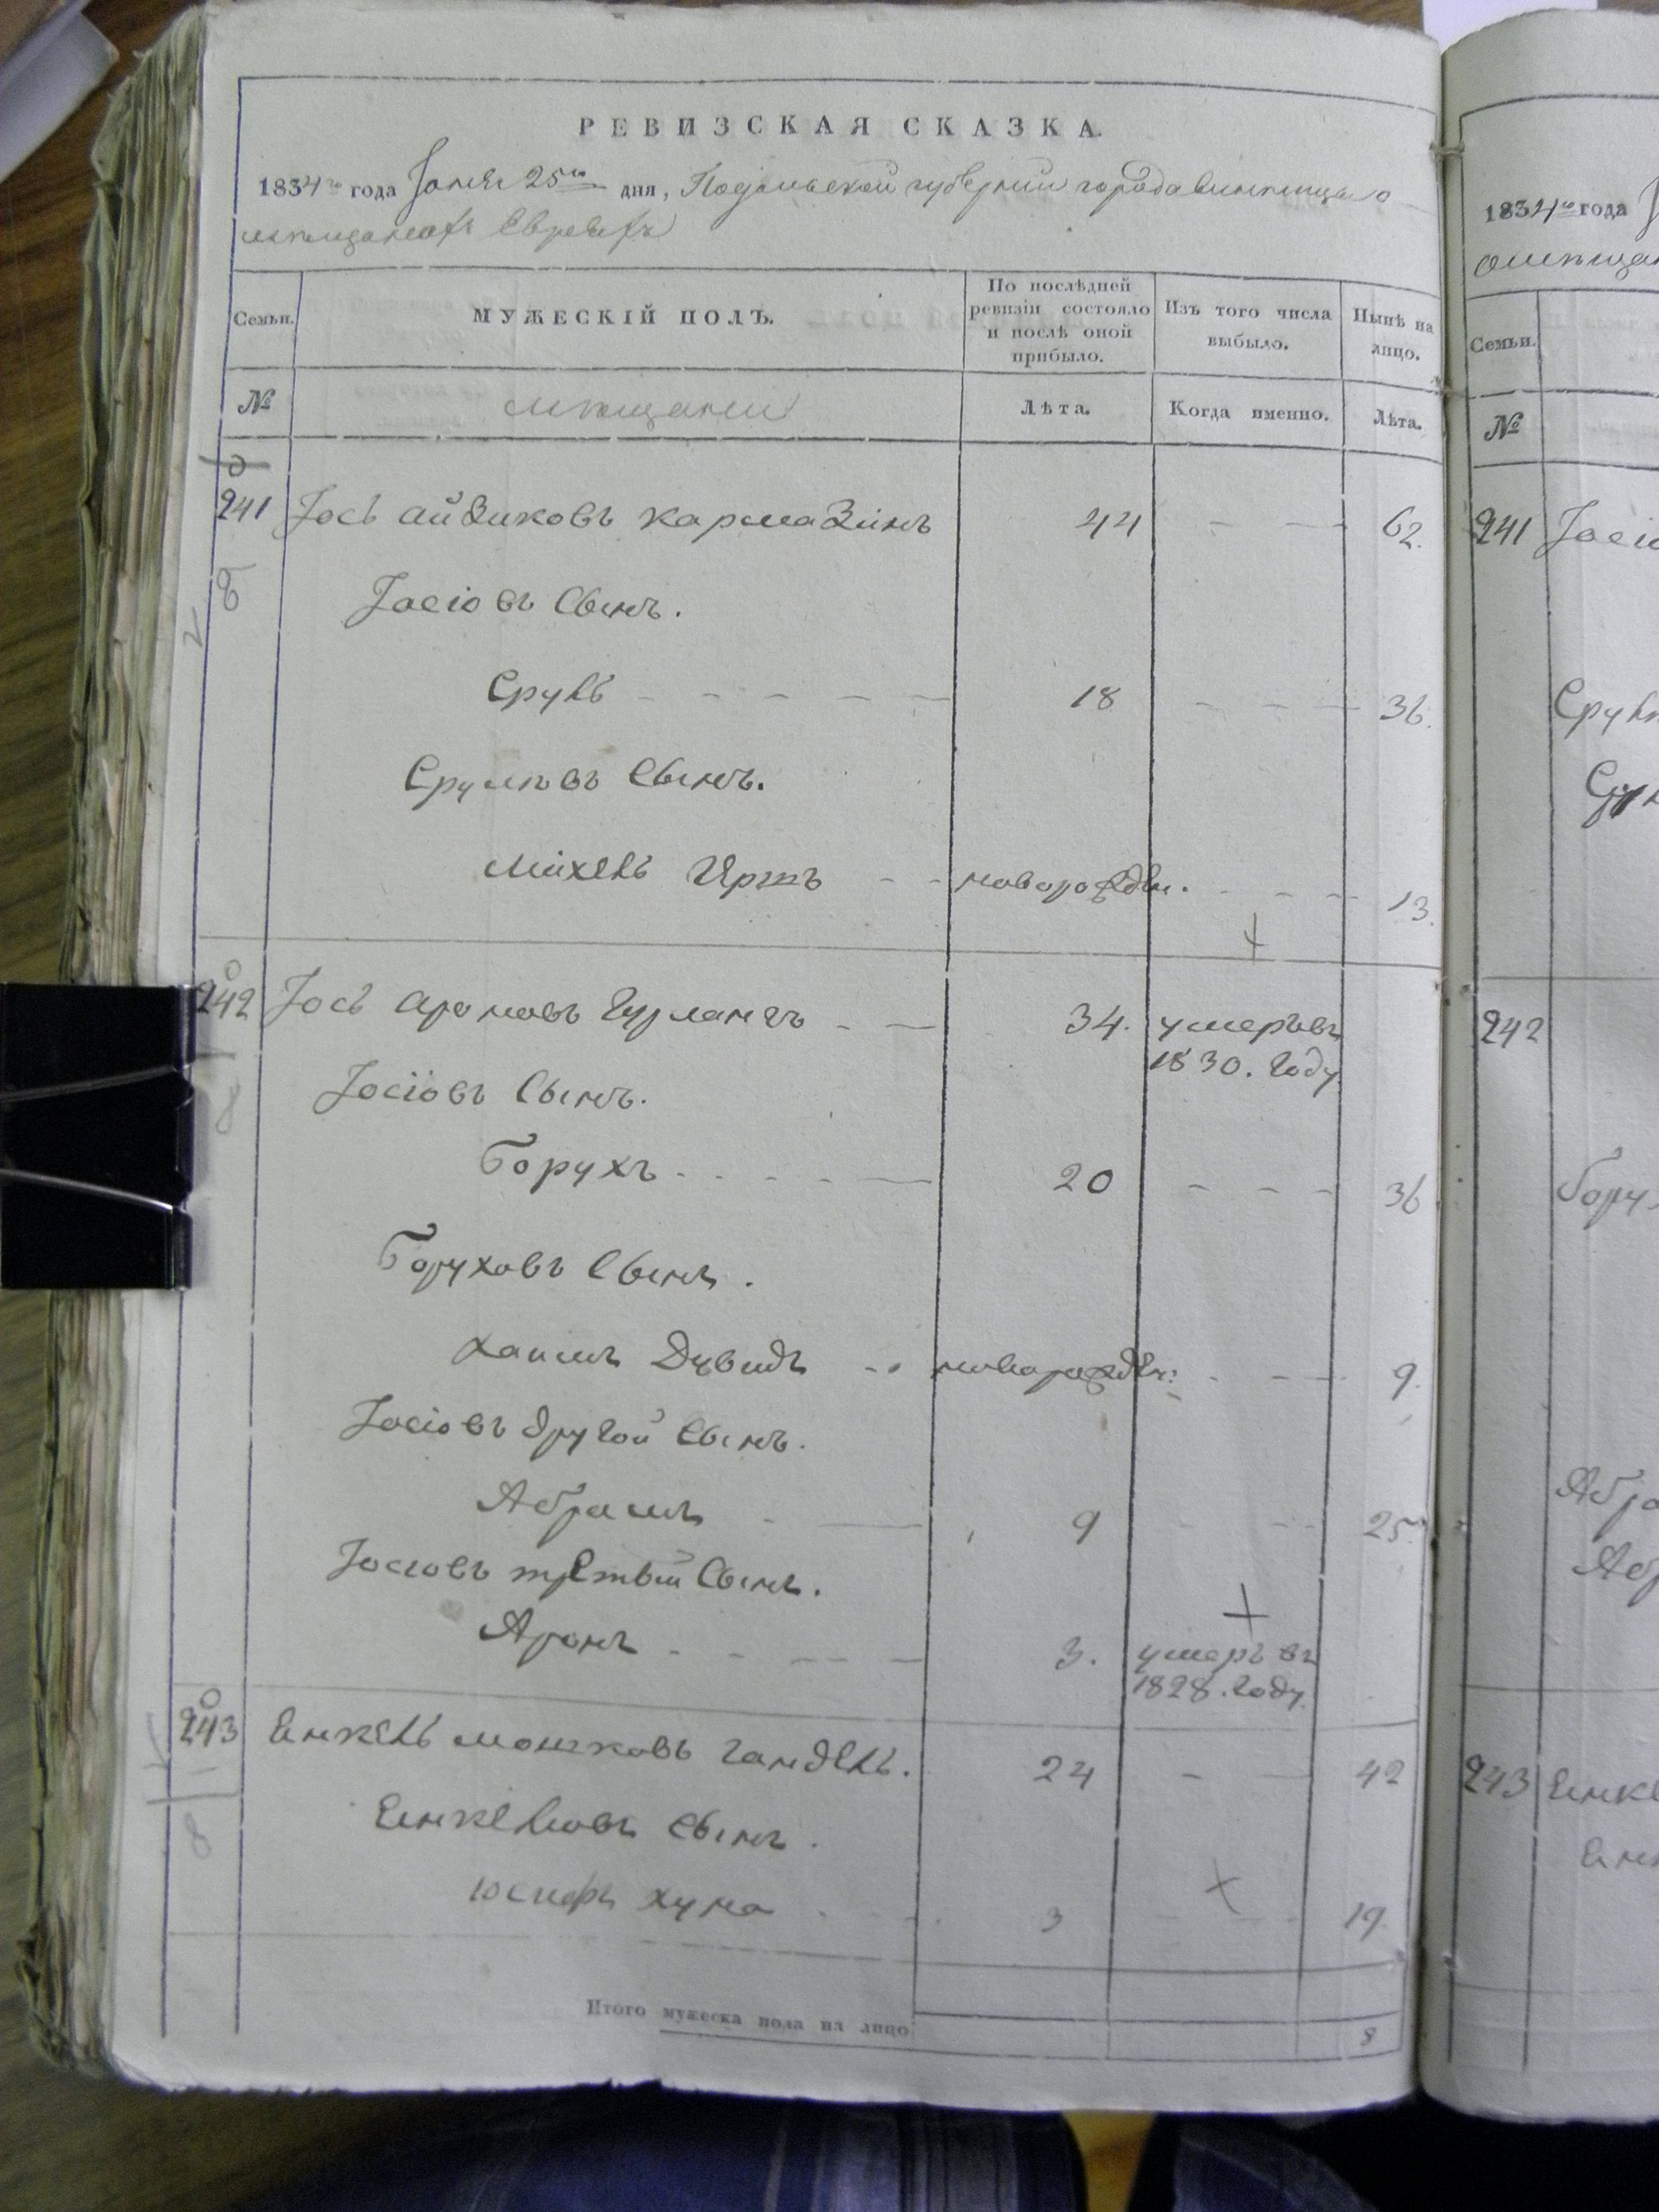 РЕВИЗСКАЯ СКАЗКА.
1834го года Іюня 25го дня, Подольской губерніи города винницы о
мѣщанахъ Евреяхъ
Семьи.
МУЖЕСКІЙ ПОЛЪ.
По послѣдней ревизіи состояло и послѣ оной прибыло.
Изъ того числа выбыло.
Нынѣ на лицо.
№ мѣщани Лѣта. Когда именно. Лѣта.
241 Іось айзиковъ кармазинъ 44 - - 62.
Іосіовъ Сынъ.
Сруль - - - - - 18 - - - 36.
Срулювъ Сынъ.
Михель Гершъ - - новорожден. - - - 13.
242 Іось ароновъ - - 34. умеръ въ
1830. году
Іосіовъ Сынъ.
Борухъ - - - - 20 - - - 36
Боруховъ Сынъ.
хаимъ Дувидъ - - новорожден: - - - 9.
Іосіовъ другой Сынъ.
Абрамъ - - 9 - - - 25.
Іосіовъ третьи Сынъ.
Аронъ - - - - 3. умеръ въ
1828. году.
243 Янкель мошковъ гандель. 24 - - 42
Янкелювъ Сынъ.
юсифъ хуна - - 3 - - - 19.
Итого мужеска пола на лицо 8
1834го года
Семьи.
№
241
242
243